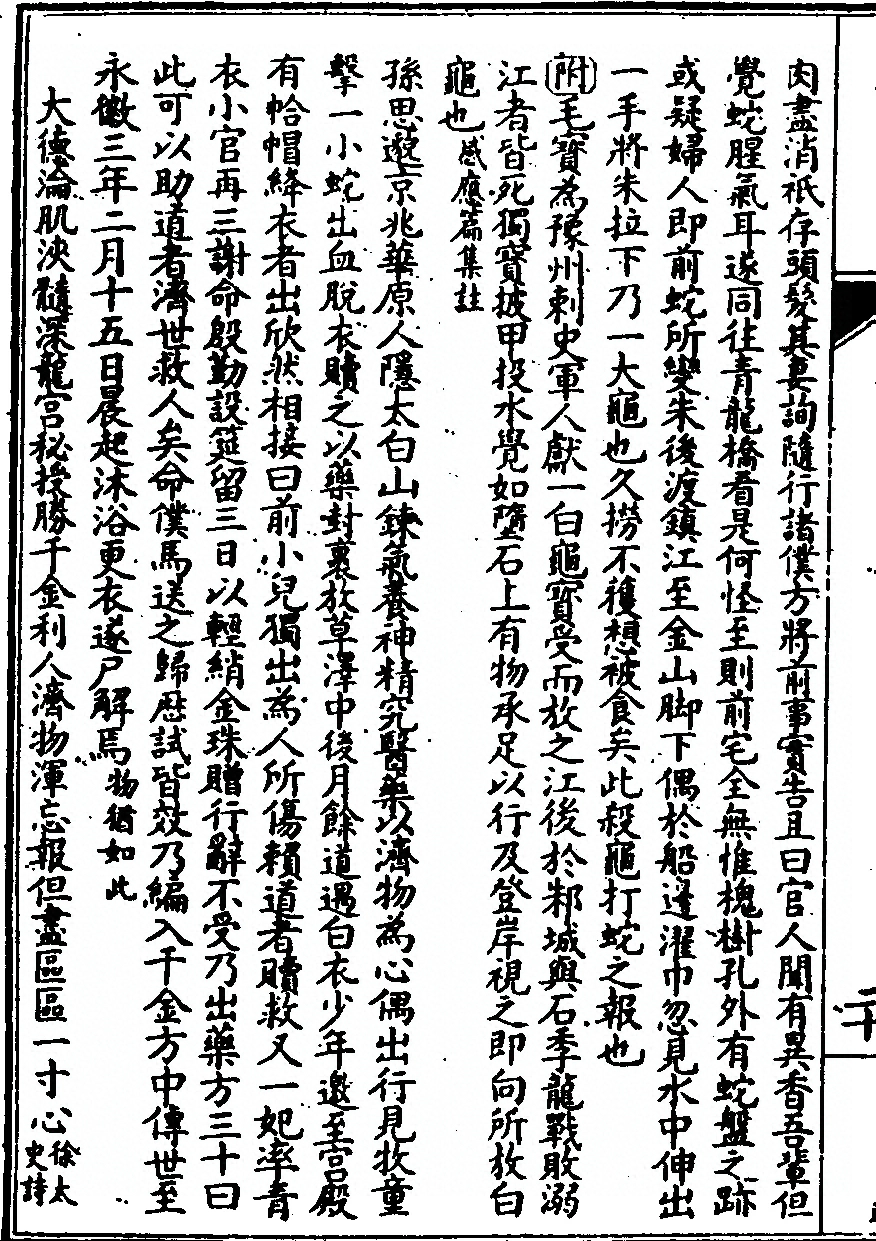 肉盡消祇存頭髮其妻詢隨行諸僕方將前事實告且曰官人聞有異香吾輩但
覺蛇腥氣耳遂同往青龍橋看是何怪至則前宅全無惟槐樹孔外有蛇盤之跡
或疑婦人即前蛇所變朱後渡鎮江至金山脚下偶於船邊濯巾忽見水中伸出
一手將朱拉下乃一大龜也久撈不獲想被食矣此殺龜打蛇之報也
附毛寳為豫州刺史軍人獻一白龜寳受而放之江後於邾城與石季龍戰敗溺
江者皆死獨寳披甲投水覺如墮石上有物承足以行及登岸視之即向所放白
龜也感應篇集註
孫思邈京兆華原人隱太白山鍊氣養神精究醫藥以濟物為心偶出行見牧童
擊一小蛇出血脫衣贖之以藥封裹放草澤中後月餘道遇白衣少年邀至宮殿
有帢帽絳衣者出欣然相接曰前小兒獨出為人所傷賴道者贖救又一妃率青
衣小官再三謝命殷勤設筵留三日以輕綃金珠贈行辭不受乃出藥方三十曰
此可以助道者濟世救人矣命僕馬送之歸歴試皆效乃編入千金方中傳世至
永徽三年二月十五日晨起沐浴更衣遂尸解焉物猶如此
大德淪肌浹髓深龍宮秘授勝千金利人濟物渾忘報但盡區區一寸心徐太史詩
二十